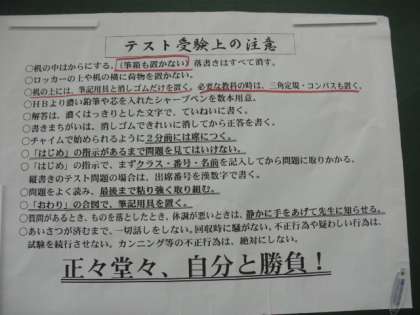 テスト受験上の注意
○机の中はからにする。(筆箱も置かない) 落書きはすべて消す。
○ロッカーの上や机の横に荷物を置かない。
○机の上には、筆記用具と消しゴムだけを置く。必要な教科の時は、三角定規・コンパスも置く。
○HBより濃い鉛筆や芯を入れたシャープペンを数本用意。
○解答は、濃くはっきりとした文字で、ていねいに書く。
○書きまちがいは、消しゴムできれいに消してから正答を書く。
○チャイムで始められるように2分前には席につく。
○「はじめ」の指示があるまで問題を見てはいけない。
○「はじめ」の指示で、まずクラス・番号・名前を記入してから問題に取りかかる。
縦書きのテスト問題の場合は、出席番号を漢数字で書く。
○問題をよく読み、最後まで粘り強く取り組む。
○「おわり」の合図で、筆記用具を置く。
○質問があるとき、ものを落としたとき、体調が悪いときは、静かに手をあげて先生に知らせる。
○あいさつが済むまで、一切話しをしない。回収時に騒がない。不正行為や疑わしい行為は、
試験を続行させない。カンニング等の不正行為は、絶対にしない。
正々堂々、自分と勝負！